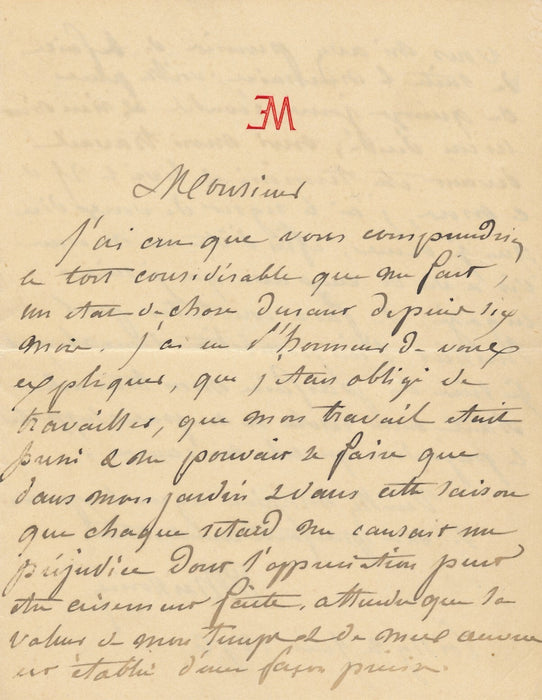 EM
Monsieur
J'ai cru que vous comprendriez
le tort considérable que me fait,
un état de chose durant depuis six
mois. J'ai eu l'honneur de vous
expliquer, que j'étais obligé de
travailler, que mon travail était
 pouvait se faire que
dans mon jardin & dans cette saison
que chaque retard me causait un
préjudice dont l'appréciation peut
être aisement faite, attendu que la
valeur de mon temps & de mes œuvres
est établie d'une façon précise.